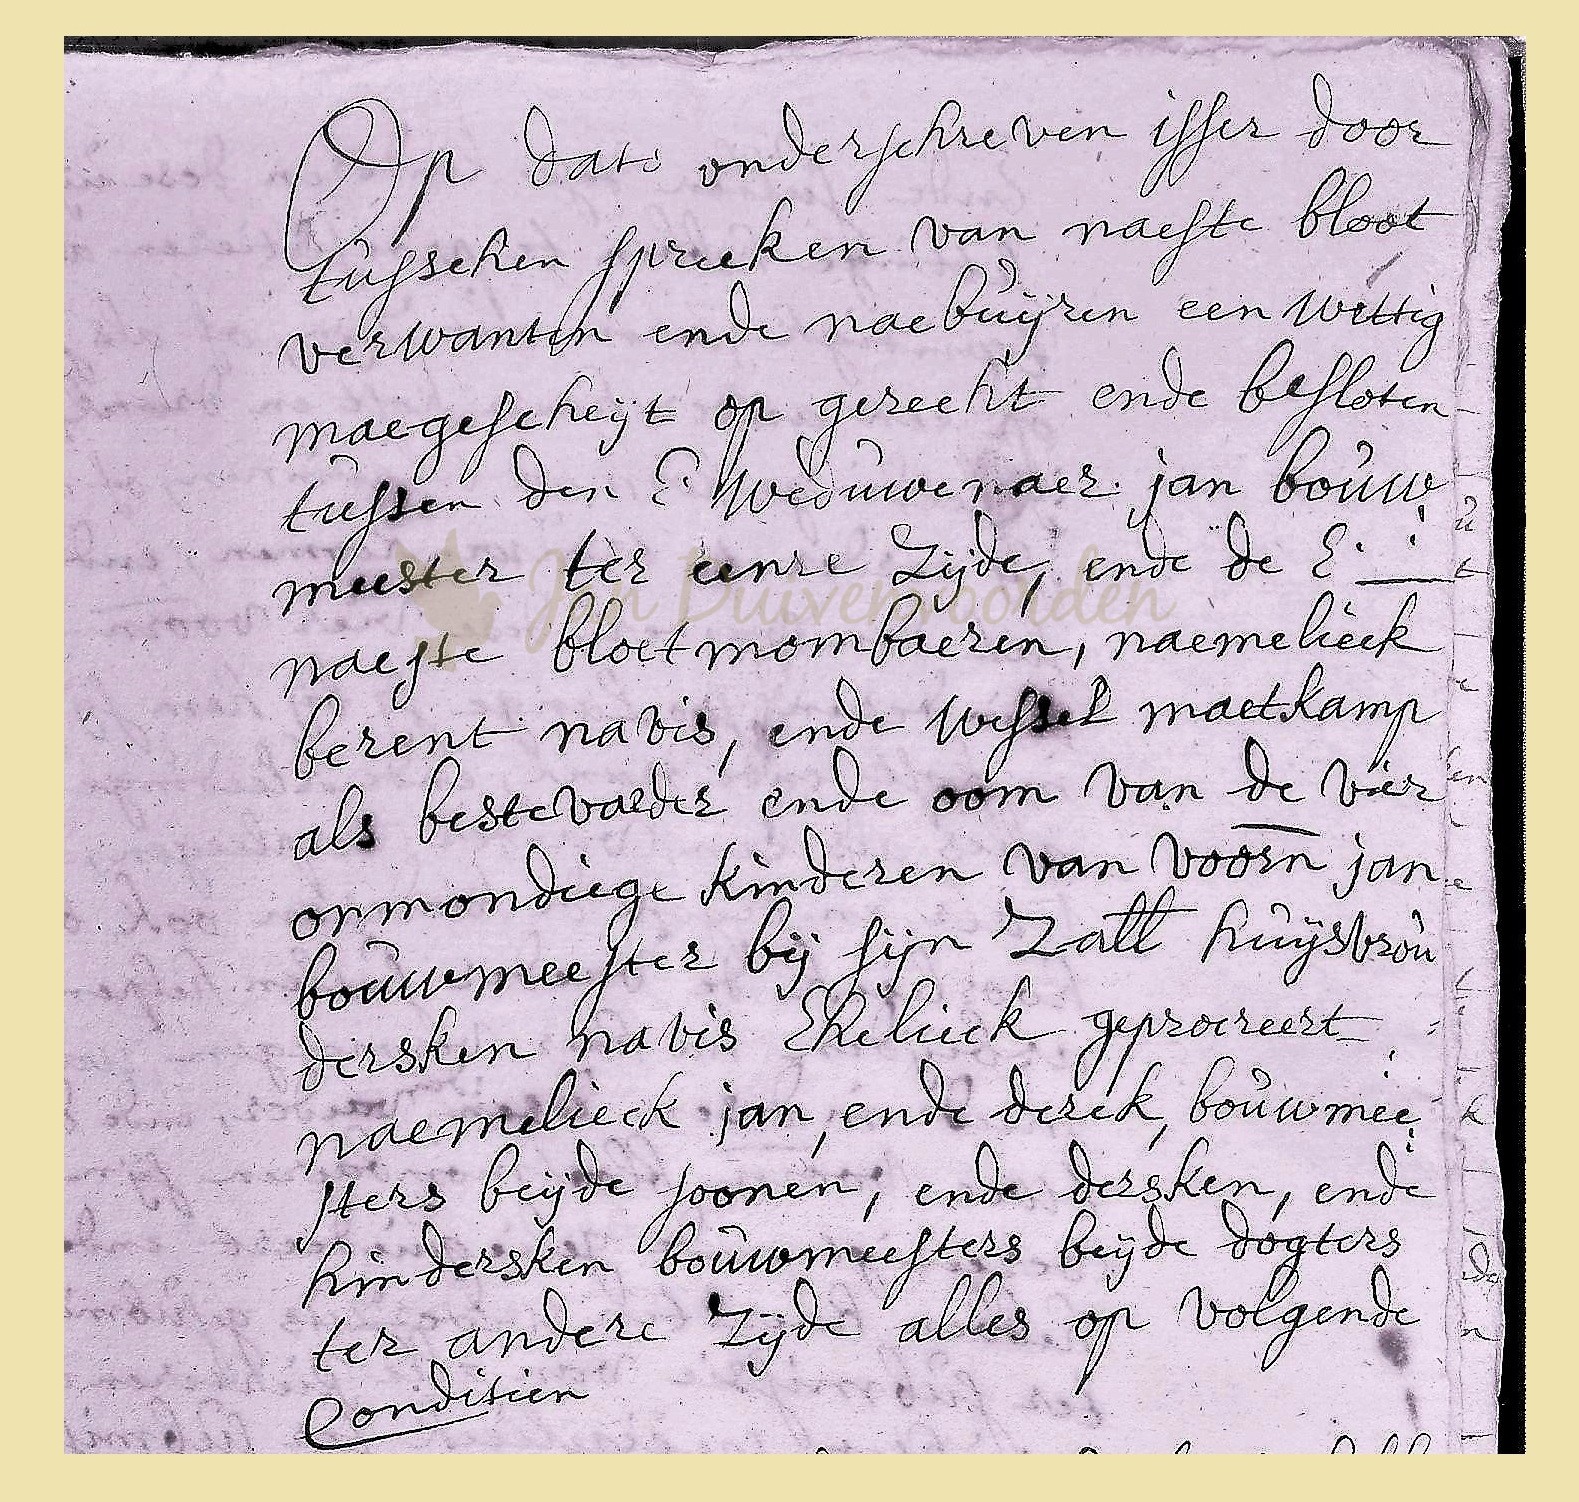 Op dato onderschreven isser door
tusschen spreeken van naeste bloot
verwanten ende naebuijren een wittig
maegescheijt op gerecht ende besloten
tussen den E weduwenaer jan bouw
meester ter eenre zijde, ende de E:
naeste bloetmombaeren, naemelieek
berent navis, ende wessel maetkamp
als bestevaeder ende oom van de vier
onmondiege kinderen van voorn jan
bouwmeester bij sijn zall huijsvrou
dersken navis Ehelieck geprocreert
naemelieck jan, ende derek, bouwmee
sters beijde soonen, ende dersken, ende
hindersken bouwmeesters beijde dogters
ter andere zijde alles op volgende
Conditien
Jan Duivenvoorden